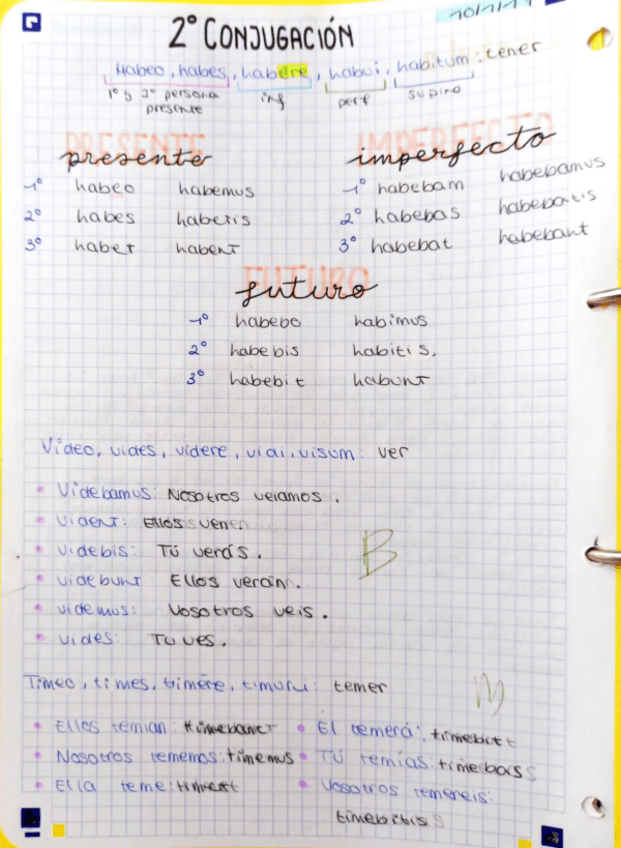 10/1/19
2º CONJUGACIÓN
Habeo, habes, habere, habui, habitum: tener
1º y 2º persona presente inf perf supino
PRESENTE IMPERFECTO
presente imperfecto
1º habeo habemus 1º habebam habebamus
2º habes habetis 2º habebas habebatis
3º habet habent 3º habebat habebant
FUTURO
futuro
1º habebo habimus
2º habebis habitis.
3º habebit habunt
Video, vides, videre, vidi, visum: ver
Videbamus: Nosotros veiamos.
Vident: Ellos ven
Videbis: Tú verás.
Videbunt Ellos verán.
Videmus: Vosotros veis.
Vides: Tu ves.
B
Timeo, times, timere, timui: temer
Ellos temian: timebant El temerá: timebit
Nosotros tememos: timemus Tú temías: timebas
Ella teme: timet Vosotros temereis:
timebitis